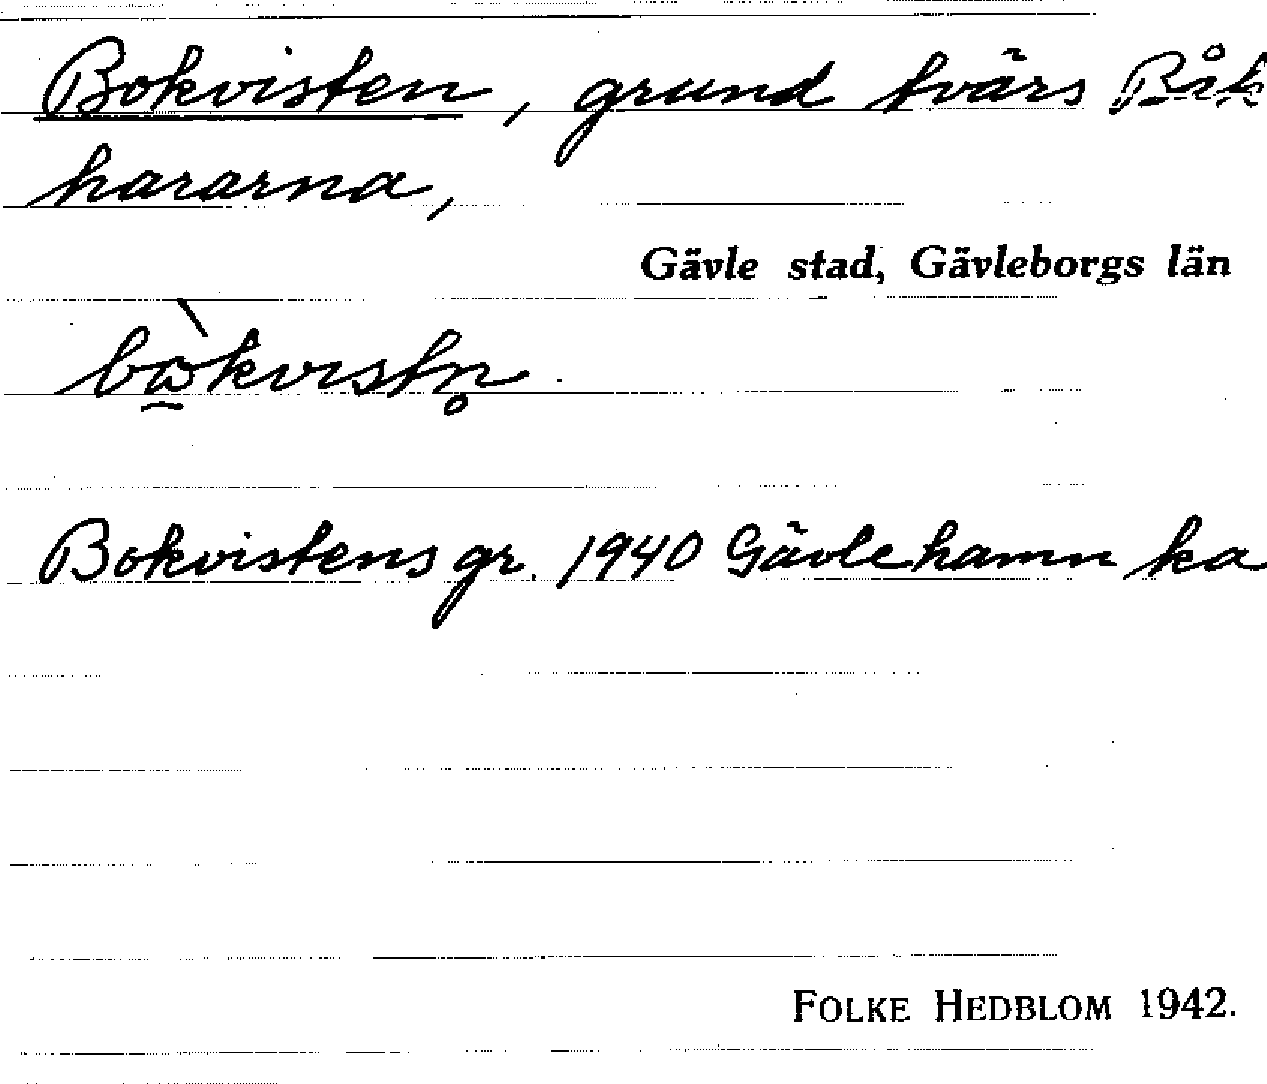 Bokvisten, grund tvärs Båk
hararna,
Gävle stad, Gävleborgs län
bὼ̲kvistn̥.
Bokvistens gr. 1940 Gävle hamn ka
FOLKE HEDBLOM 1942.